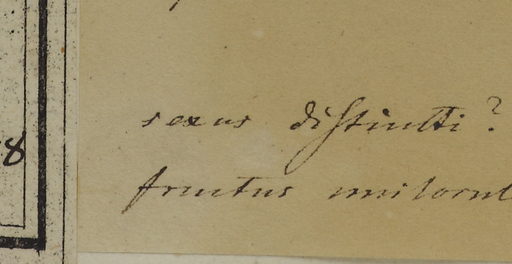 8
sexus distincti?
fructus unilocul